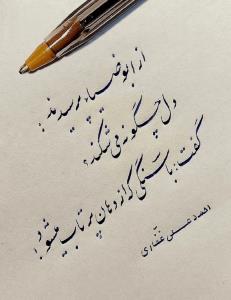 از ابوضیاء پرسیدند:
دل چگونه می شکند؟
گفتا: با سنگی که از دهان پرتاب میشود!
احمد علی غفاری